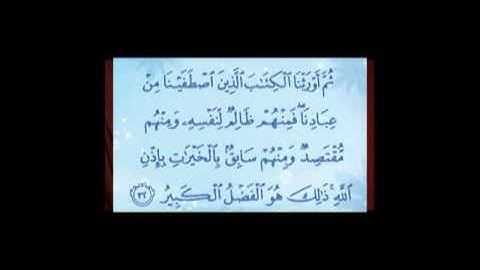 ثُمَّ أَوْرَثْنَا ٱلْكِتَٰبَ ٱلَّذِينَ ٱصْطَفَيْنَا مِنْ
عِبَادِنَا ۖ فَمِنْهُمْ ظَالِمٌ لِّنَفْسِهِۦ وَمِنْهُم
مُّقْتَصِدٌ وَمِنْهُمْ سَابِقٌۢ بِٱلْخَيْرَٰتِ بِإِذْنِ
ٱللَّهِ ۚ ذَٰلِكَ هُوَ ٱلْفَضْلُ ٱلْكَبِيرُ ٣٢